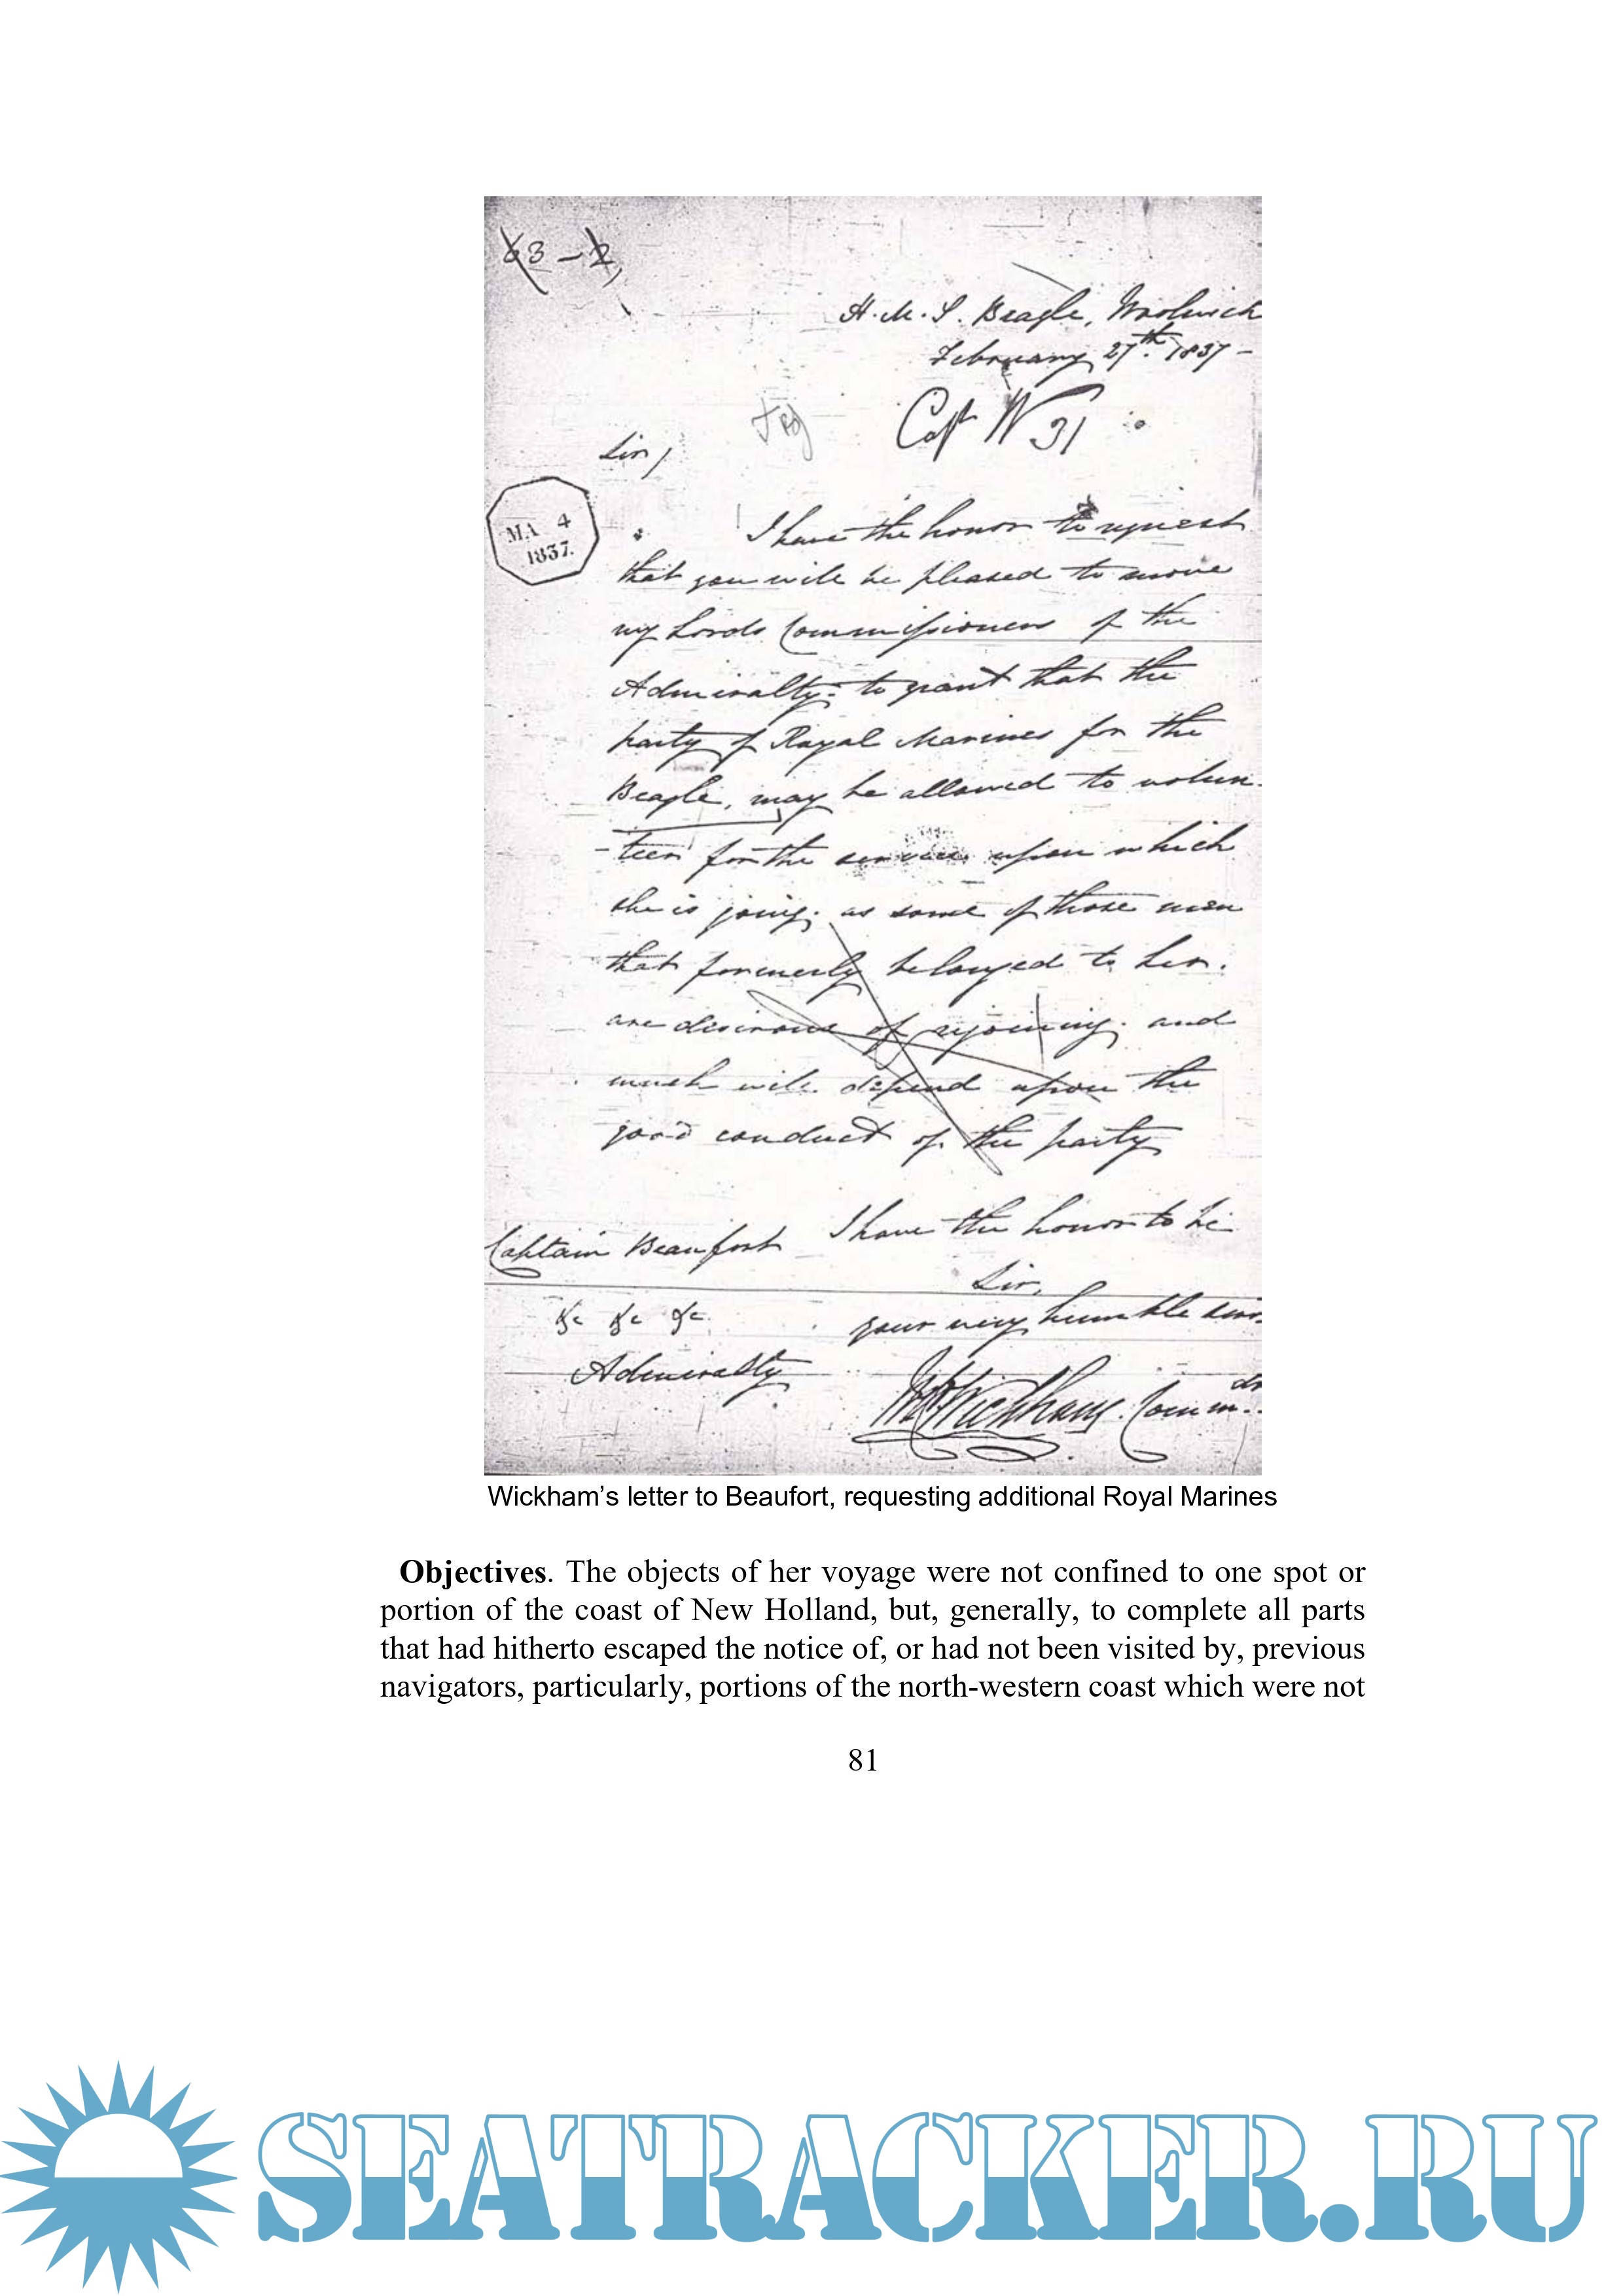 63-2
H.M.S. Beagle, Woolwich
February 27th. 1837 -
Capt W 31
Sir,
MA 4
1837.
I have the honor to request
that you will be pleased to move
my Lords Commissioners of the
Admiralty: to grant that the
party of Royal Marines for the
Beagle, may be allowed to volun-
-teer for the service upon which
she is going; as some of those men
that formerly belonged to her.
are desirous of rejoining; and
much will depend upon the
good conduct of the party
I have the honor to be
Captain Beaufort
Sir,
&c &c &c
your very humble serv
Admiralty
Wickham. Comm.dr
Wickham’s letter to Beaufort, requesting additional Royal Marines
Objectives. The objects of her voyage were not confined to one spot or
portion of the coast of New Holland, but, generally, to complete all parts
that had hitherto escaped the notice of, or had not been visited by, previous
navigators, particularly, portions of the north-western coast which were not
81
SEATRACKER.RU